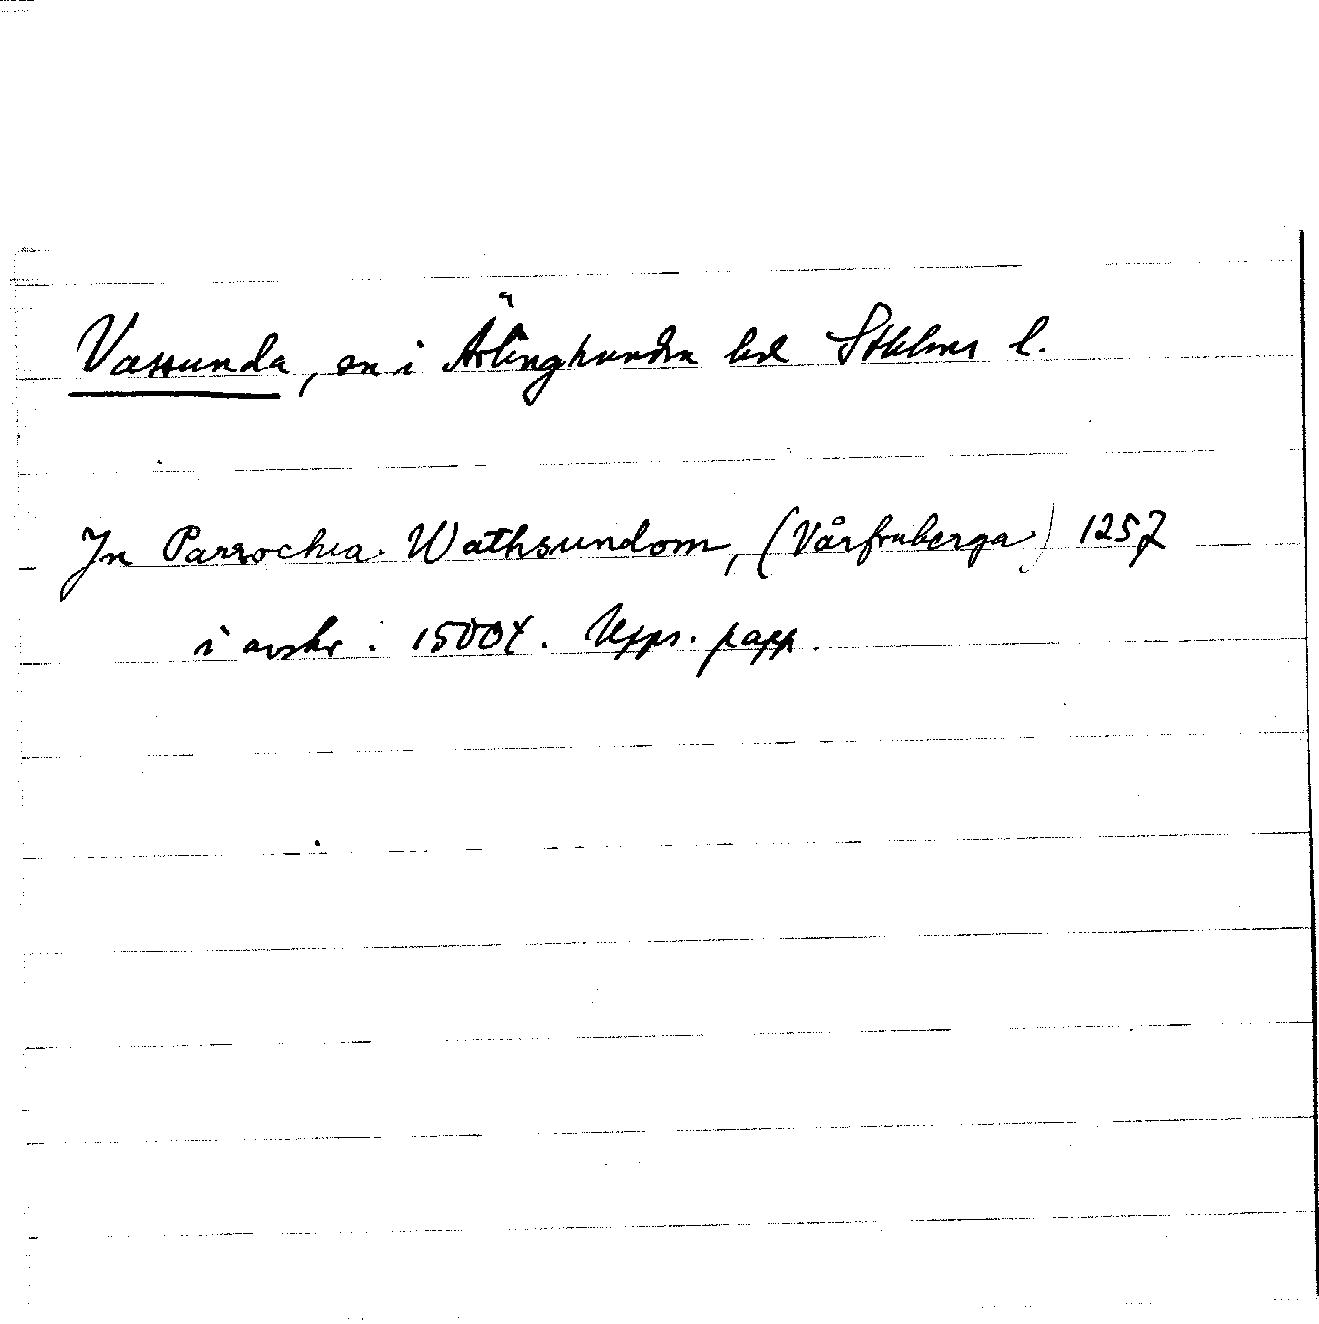 Vassunda, sn i Ärlinghundra hd Sthlms l.
In Parrochia Wathsundom, (Vårfruberga) 1257
i avskr. 1500t. Upps. papp.